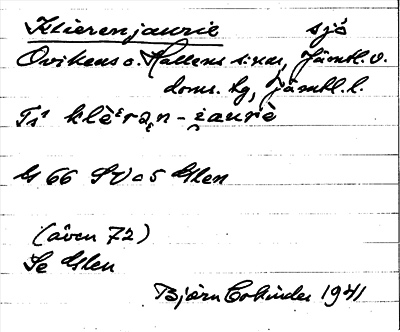 Klierenjaurie sjö
Ovikens o. Hallens s:nar, Jämtl. v.
doms. hg, Jämtl. l.
klèᵋrən - jaurè
G 66 SV o 5 Glen
(även 72)
Se Glen
Björn Collinder 1941